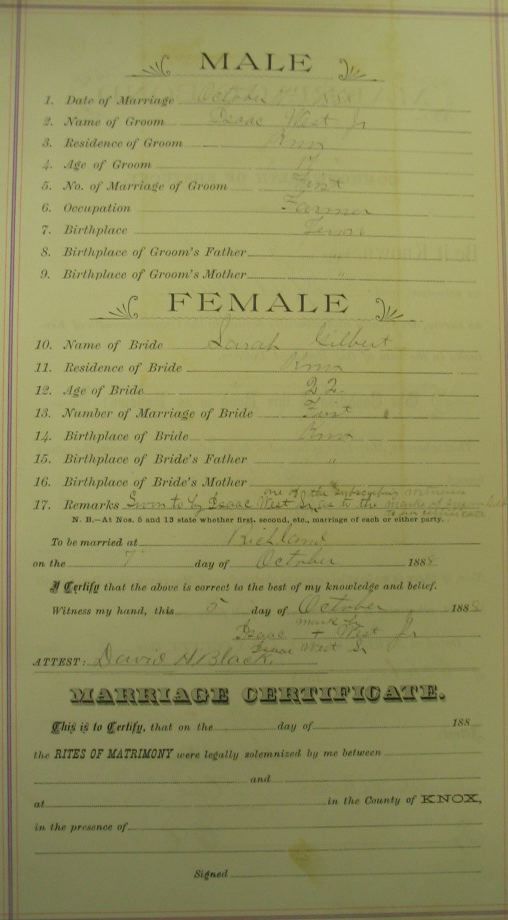 MALE
1. Date of Marriage October 7th 188
2. Name of Groom Isaac West Jr
3. Residence of Groom Knox
4. Age of Groom
5. No. of Marriage of Groom First
6. Occupation Farmer
7. Birthplace Tenne
8. Birthplace of Groom's Father "
9. Birthplace of Groom's Mother "
FEMALE
10. Name of Bride Sarah Gilbert
11. Residence of Bride Knox
12. Age of Bride 22
13. Number of Marriage of Bride First
14. Birthplace of Bride Knox
15. Birthplace of Bride's Father "
16. Birthplace of Bride's Mother
one of the subscribing witnesses
17. Remarks Sworn to by Isaac West Sr as to the marks of
N. B.—At Nos. 5 and 13 state whether first, second, etc., marriage of each or either party.
To be married at Richland
on the 7 day of October 188
I Certify that the above is correct to the best of my knowledge and belief.
Witness my hand, this 5 day of October 188
mark by
Isaac + West Jr
Isaac West Sr
ATTEST: David H Black
MARRIAGE CERTIFICATE.
This is to Certify, that on the day of 188
the RITES OF MATRIMONY were legally solemnized by me between
and
at in the County of KNOX,
in the presence of
Signed